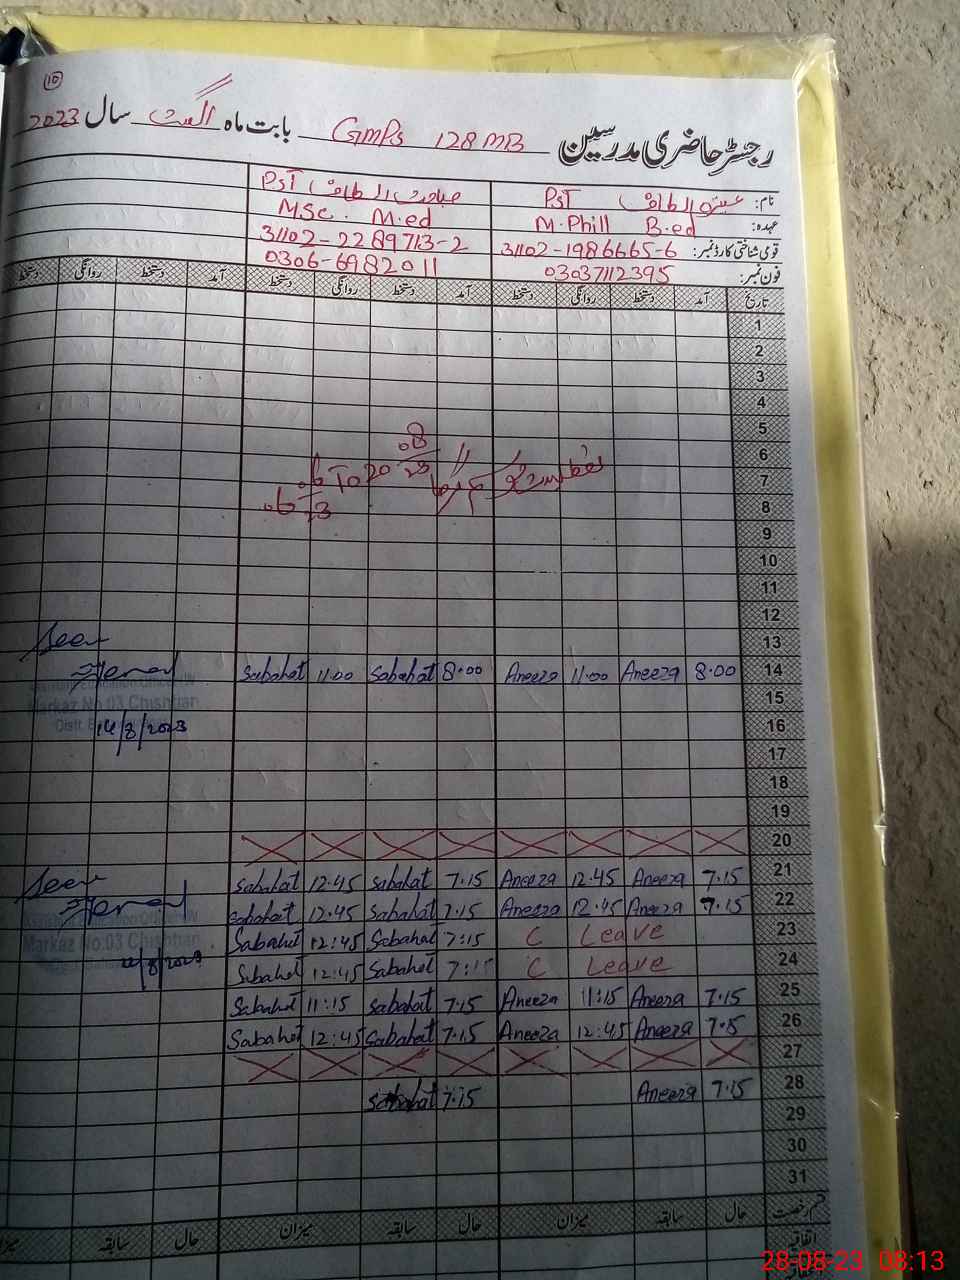 10
رجسٹر حاضری مدرسین GMPS 128 MB بابت ماہ اگست سال 2023
نام: PST عنیزہ الطاف PST صباحت الطاف
عہدہ: M.Phill B.ed M.Sc. M.ed
قومی شناختی کارڈ نمبر: 31102-1986665-6 31102-2289713-2
فون نمبر: 03037112395 0306-6982011
تاریخ آمد دستخط روانگی دستخط آمد دستخط روانگی دستخط آمد دستخط روانگی دستخط
1
2
3
4
5
6
7
8
9
10
11
12
13
Seen
14 8.00 Aneeza 11.00 Aneeza 8.00 Sabahat 11.00 Sabahat
15
Markaz No:03 Chishtian
16 14/8/2023
17
18
19
20
21 7.15 Aneeza 12.45 Aneeza 7.15 Sabahat 12.45 Sabahat
Seen
22 7.15 Aneeza 12.45 Aneeza 7.15 Sabahat 12.45 Sabahat
23 C Leave 7:15 Sabahat 12:45 Sabahat
Markaz No:03 Chishtian
24 C Leave 7:15 Sabahat 12:45 Sabahat
25 7.15 Aneeza 11:15 Aneeza 7.15 Sabahat 11:15 Sabahat
26 7.15 Aneeza 12:45 Aneeza 7.15 Sabahat 12:45 Sabahat
27
28 7.15 Aneeza 7.15 Sabahat
29
30
31
قسم رخصت حال سابقہ میزان حال سابقہ میزان حال سابقہ میزان
اتفاقیہ
28-08-23 08:13